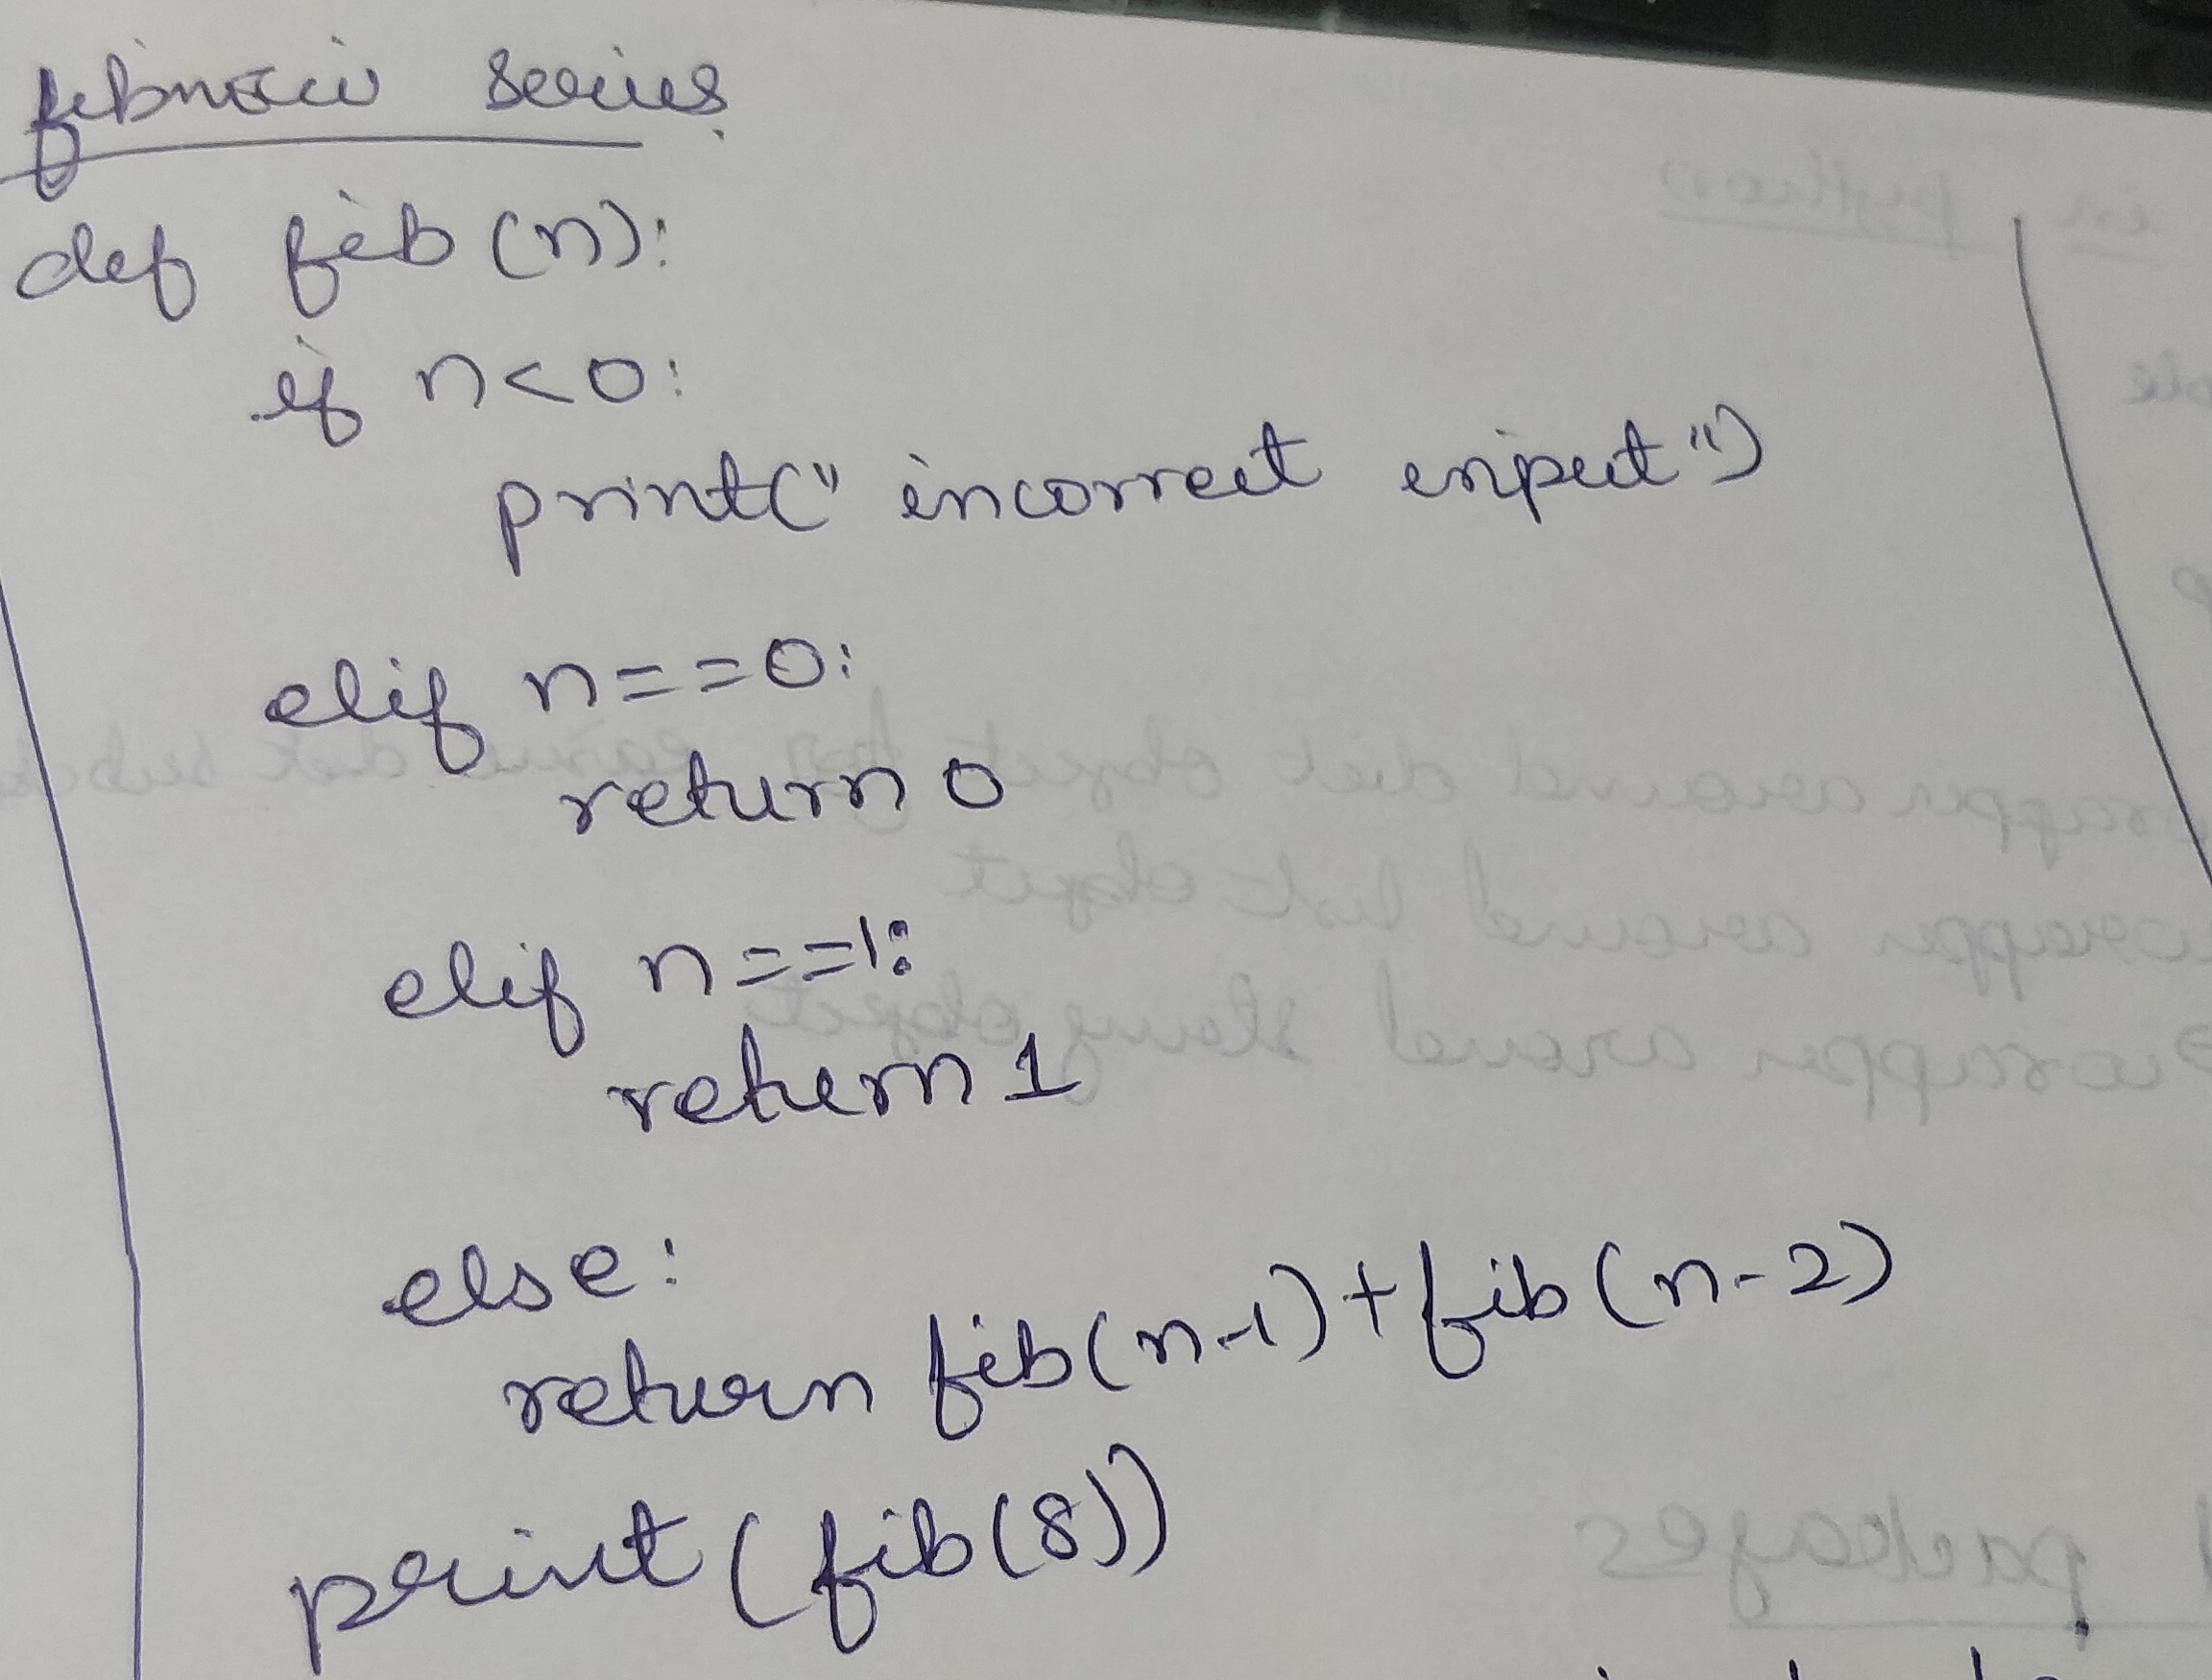 fibnocci series
def fib (n):
if n<0:
print(" incorrect input")
elif n==0:
return 0
elif n==1:
return 1
else:
return fib(n-1)+fib(n-2)
print (fib(8))